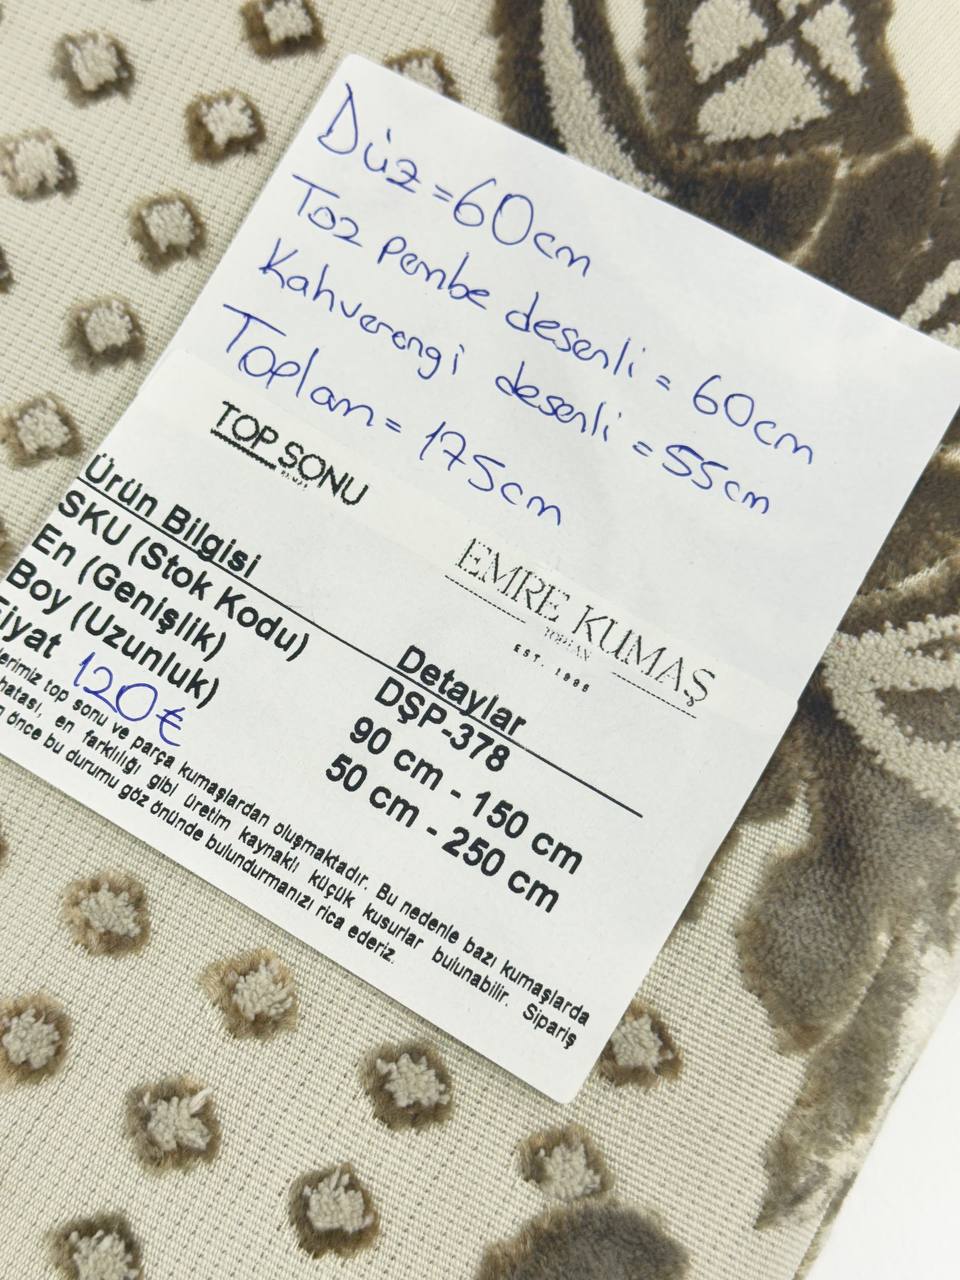 Düz = 60cm
Toz pembe desenli = 60cm
Kahverengi desenli = 55cm
Toplam = 175cm
TOP SONU
EMRE KUMAŞ
EST. 1996
Ürün Bilgisi Detaylar
SKU (Stok Kodu) DŞP-378
En (Genişlik) 90 cm - 150 cm
Boy (Uzunluk) 50 cm - 250 cm
iyat 120€
erimiz top sonu ve parça kumaşlardan oluşmaktadır. Bu nedenle bazı kumaşlarda
hatası, en farklılığı gibi üretim kaynaklı küçük kusurlar bulunabilir. Sipariş
önce bu durumu göz önünde bulundurmanızı rica ederiz.